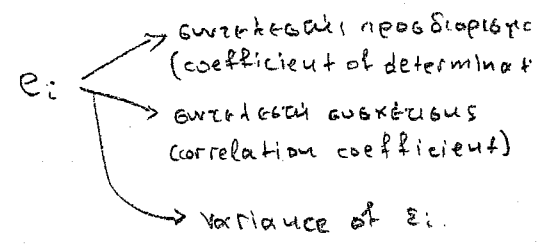 συντελεστής προσδιορισμ
(coefficient of determinat
eᵢ
συντελεστή συσχέτισης
(correlation coefficient)
variance of εᵢ.